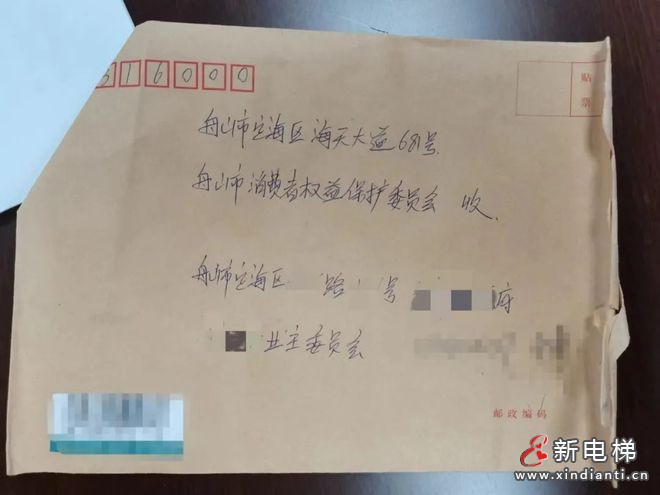 316000
贴
票
舟山市定海区海天大道681号
舟山市消费者权益保护委员会 收
舟山市定海区 路 号 府
业主委员会
邮政编码
新电梯
www.xindianti.cn